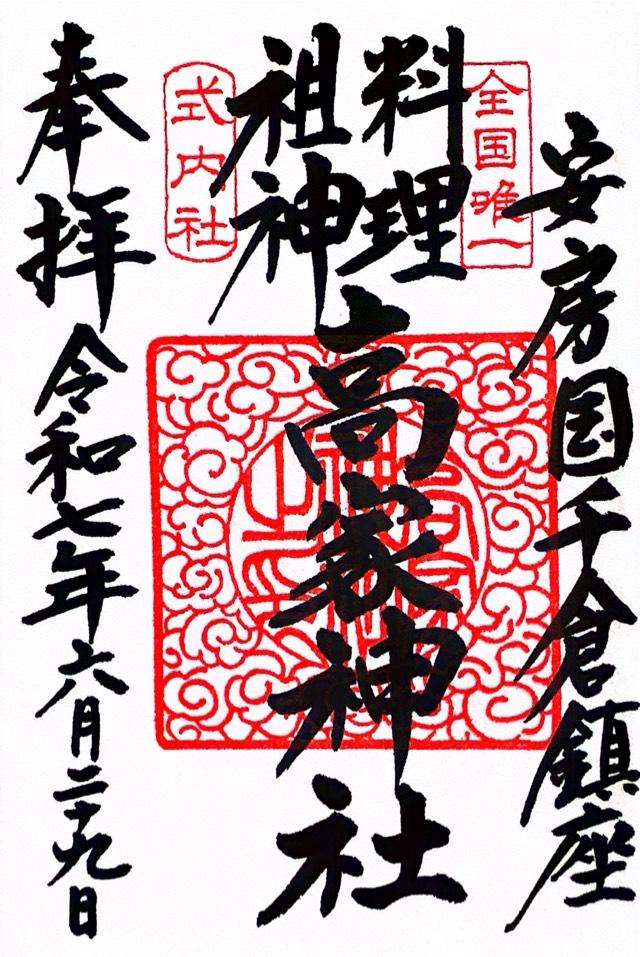 安房国千倉鎮座
全国唯一
料理
祖神
高家神社
式内社
奉拝
令和七年六月二十九日